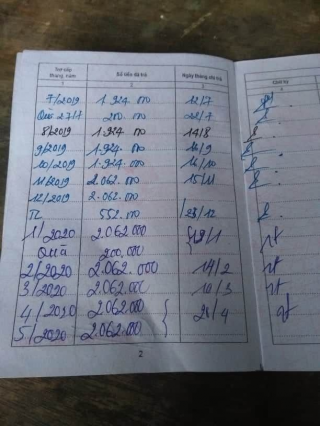 Trợ cấp tháng, năm Số tiền đã trả Ngày tháng chi trả
7/2019 1.924.000 12/7
Quà 27/7 200.000 22/7
8/2019 1.924.000 14/8
9/2019 1.924.000 16/9
10/2019 1.924.000 16/10
11/2019 2.062.000 15/11
12/2019 2.062.000
TL 552.000 23/12
1/2020 2.062.000 19/1
Quà 200.000
2/2020 2.062.000 14/2
3/2020 2.062.000 10/3
4/2020 2.062.000 20/4
5/2020 2.062.000
2